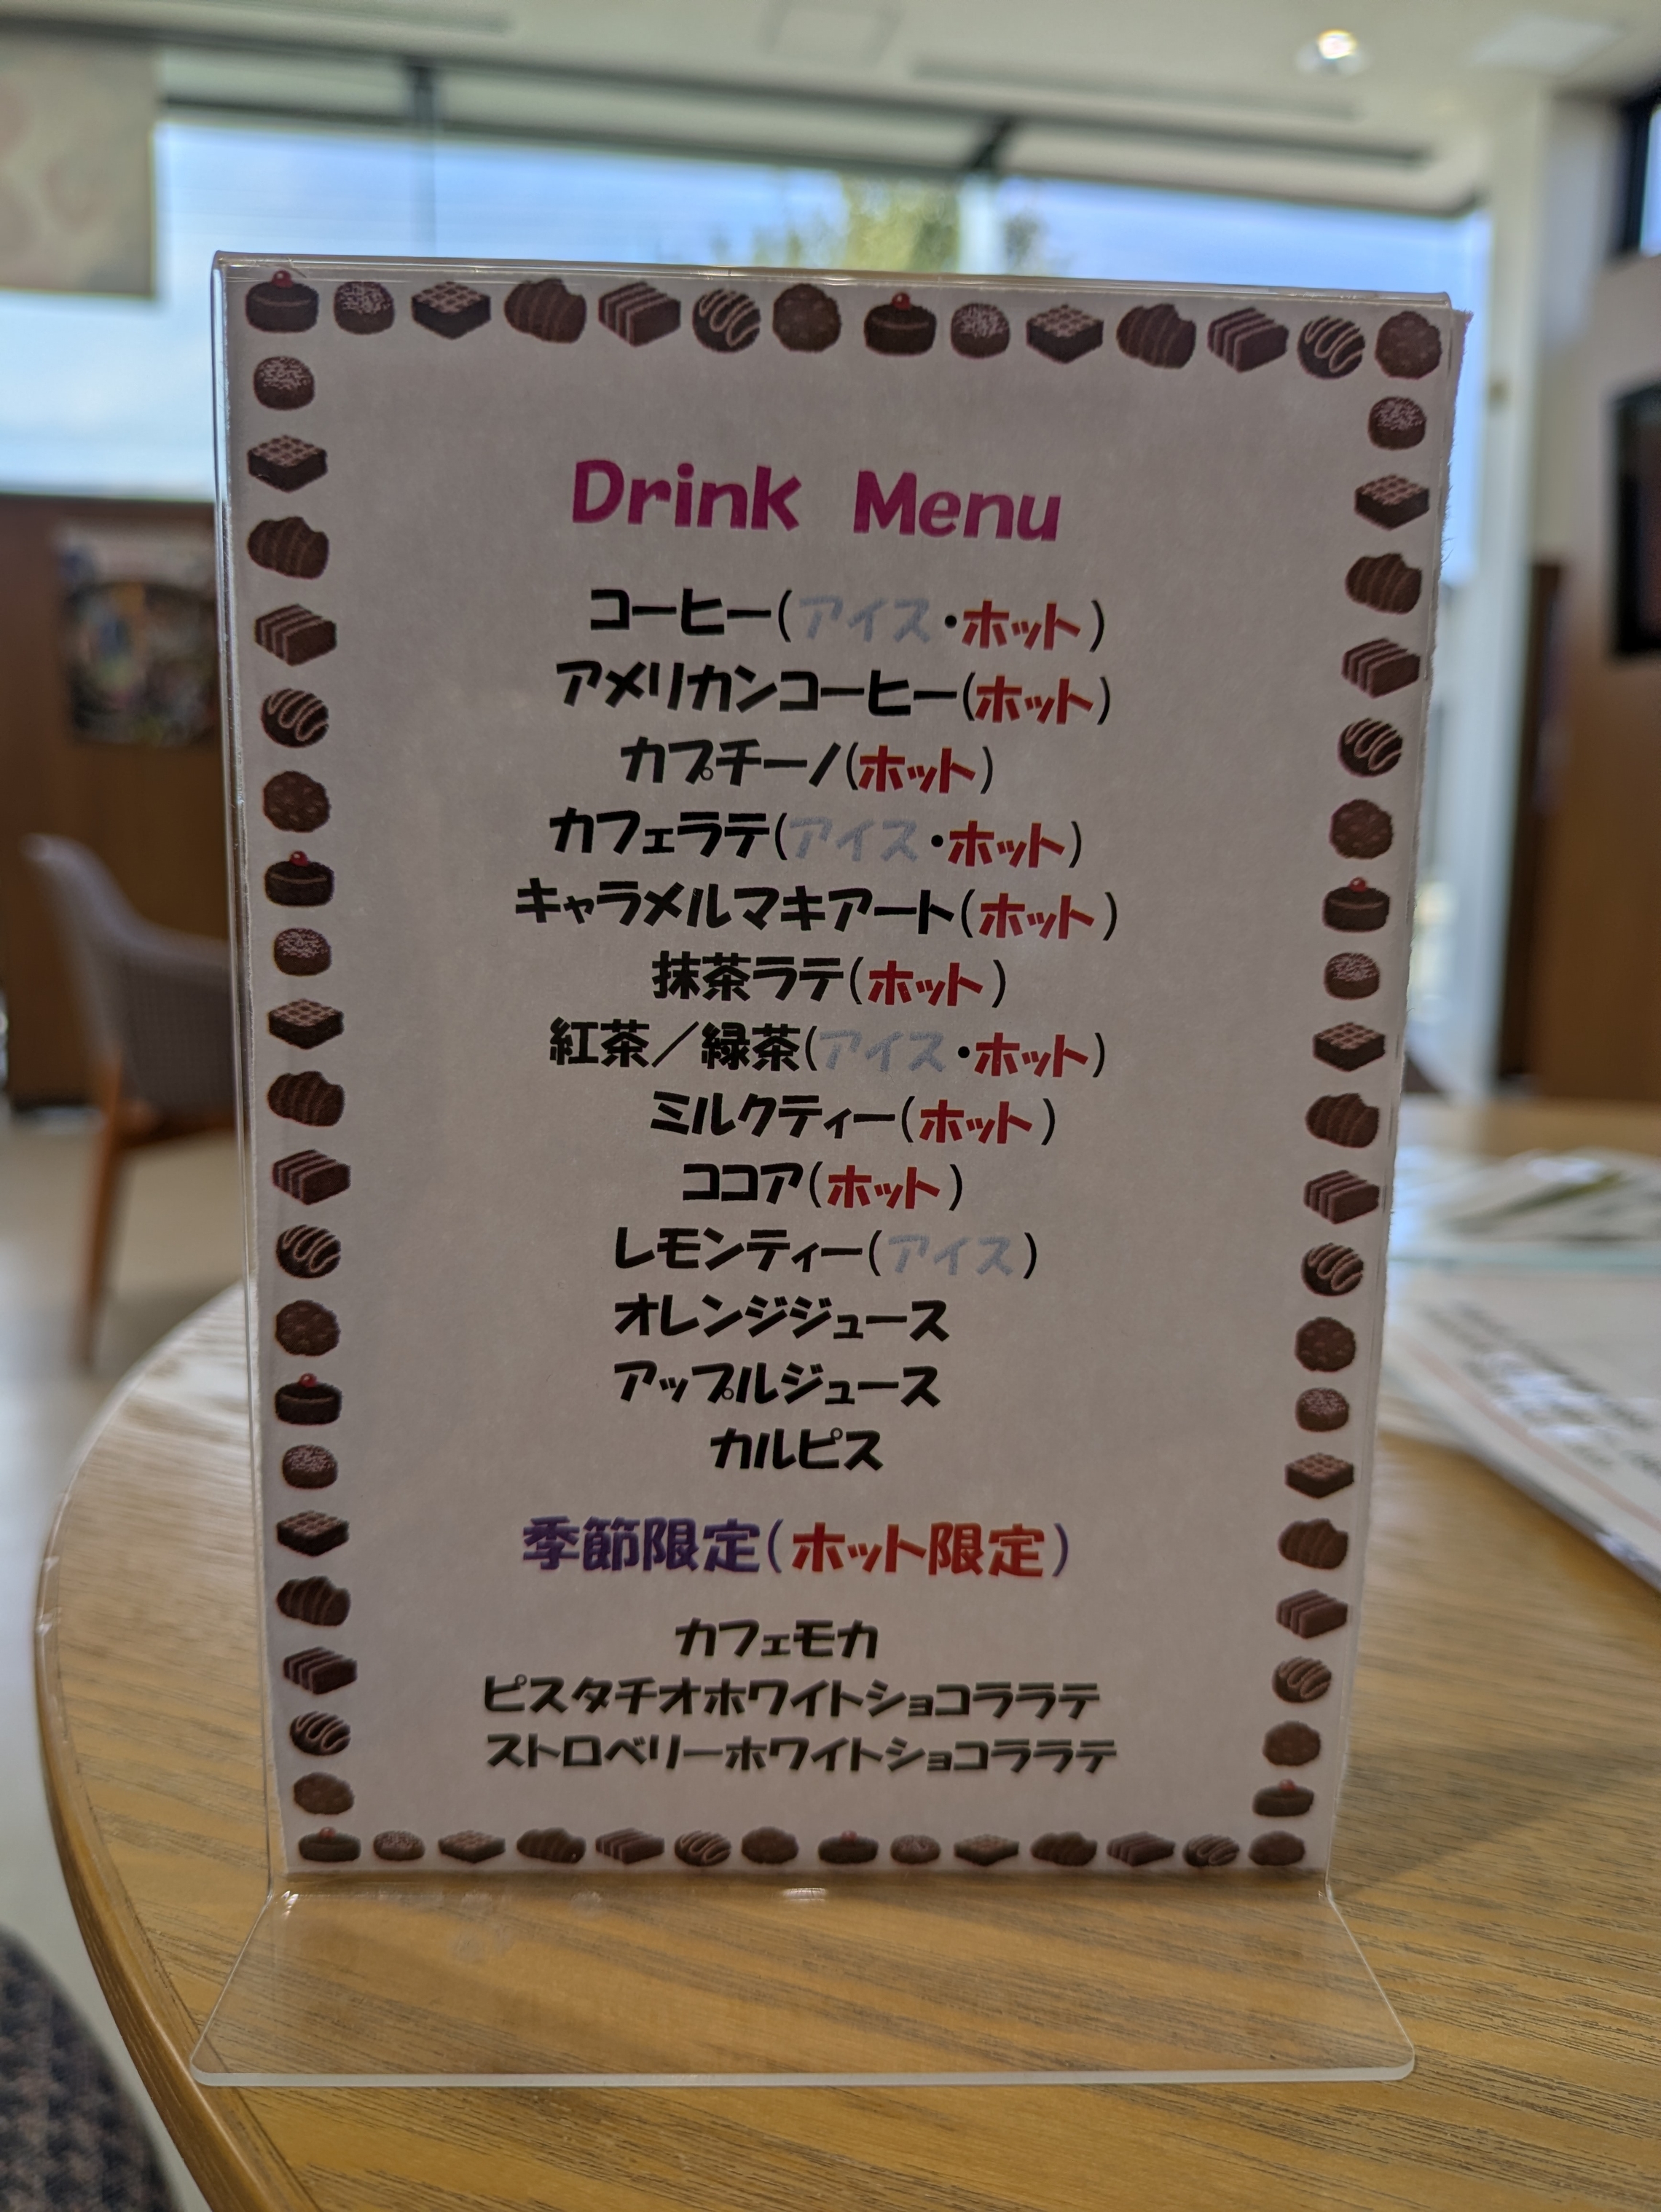 Drink Menu
コーヒー(アイス・ホット)
アメリカンコーヒー(ホット)
カプチーノ(ホット)
カフェラテ(アイス・ホット)
キャラメルマキアート(ホット)
抹茶ラテ(ホット)
紅茶／緑茶(アイス・ホット)
ミルクティー(ホット)
ココア(ホット)
レモンティー(アイス)
オレンジジュース
アップルジュース
カルピス
季節限定(ホット限定)
カフェモカ
ピスタチオホワイトショコララテ
ストロベリーホワイトショコララテ